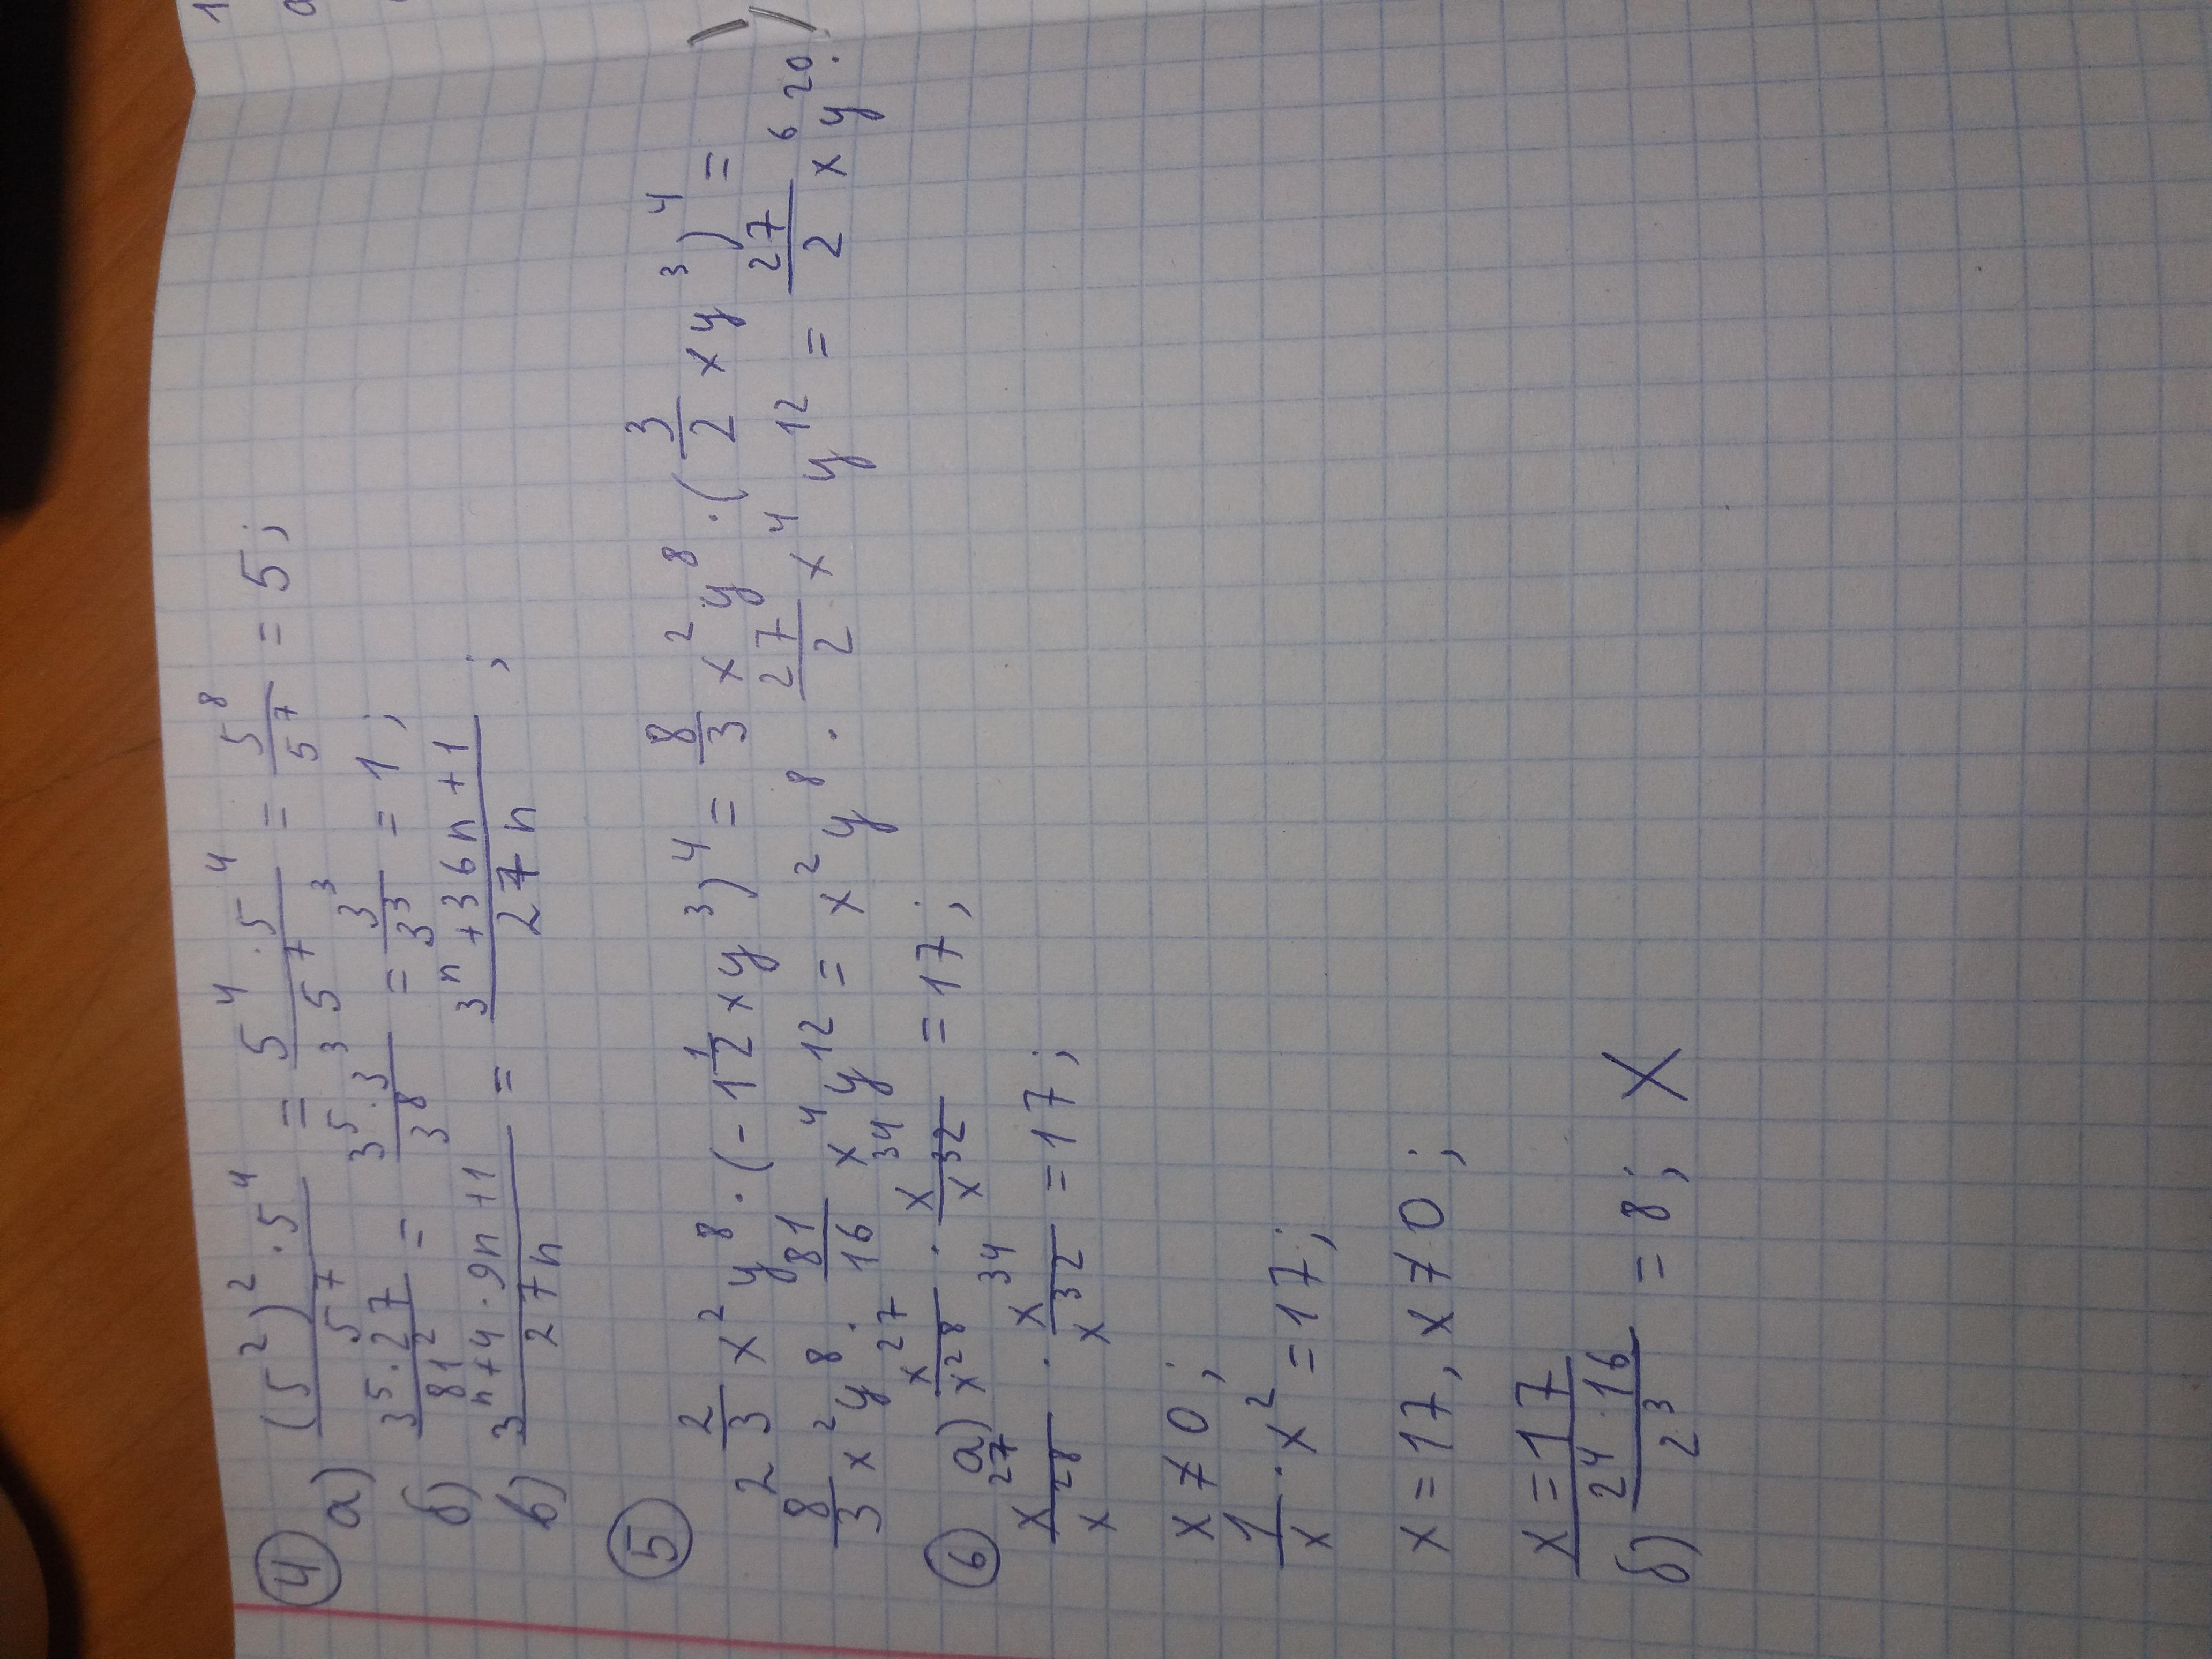 ④
а) (5²)²·5⁴ / 5⁷ = 5⁴·5⁴ / 5⁷ = 5⁸ / 5⁷ = 5;
б) 3⁵·27⁵ / 81² = 3⁵·3³ / 3⁸ = 3³ / 3³ = 1;
в) 3ⁿ+4·9n+1 / 27n = 3ⁿ+36n+1 / 27n ;
⑤ 2 2/3 x²y⁸·(-1 1/2 xy³)⁴ = 8/3 x²y⁸·(3/2 xy³)⁴ =
8/3 x²y⁸·81/16 x⁴y¹² = x²y⁸·27/2 x⁴y¹² = 27/2 x⁶y²⁰.
⑥ а) x²⁷ / x²⁸ · x³⁴ / x³² = 17;
x²⁷ / x²⁸ · x³⁴ / x³² = 17;
x≠0;
1/x · x² = 17;
x = 17, x≠0;
x = 17
б) 2⁴·16 / 2³ = 8; X